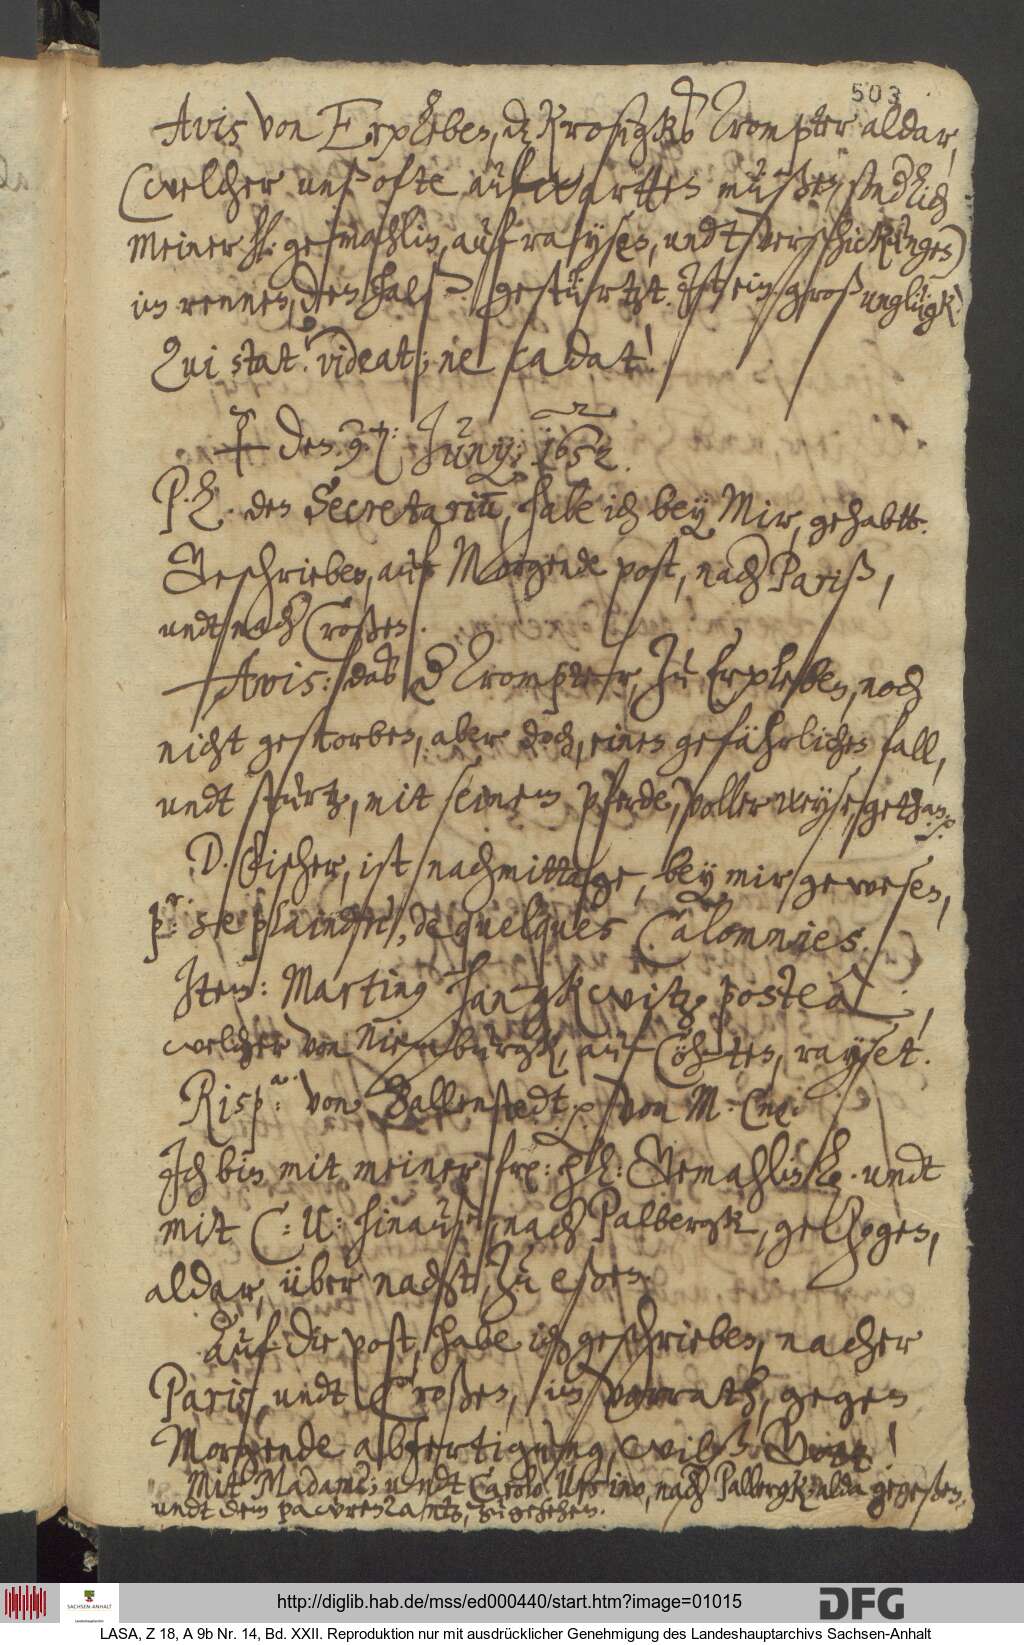 503
Avis von Erxleben, dz Krosigks Trompter aldar,
(welcher unß ofte aufwartten müßen, sendlich
meiner hl. gemahlin, auf raysen, undt verschickungen)
im rennen, den halß gestürtzt. Ist ein groß unglügk.
Qui stat! videat; ne cadat!
den 9. Juny; 1652.
P. H. den Secretarium, habe ich bey Mir, gehabtt.
Geschrieben, auf Morgende post, nach Pariß,
undt nach Croßen.
Avis: daß der Trompter, zu Erxleben, noch
nicht gestorben, aber doch, einen gefährlichen fall,
undt sturtz, mit seinem pferde, voller weyse, gethan.
D. Fischer, ist nachmittage, bey mir gewesen,
pour se plaindre, de quelques Calomnies.
Item: Martinus Hangkwitz, postea;
welcher von Niemburgk, auf Cöhten, rayset.
Risp.a: von Ballenstedt von M.
Ich bin mit meiner frl: hertzl: Gemahlin L. undt
mit C: U: hinauß, nach Palbergk, gezogen,
aldar, über nacht, zu eßen.
Auf die post, habe ich geschrieben, nacher
Paris, undt Croßen, im vorrath, gegen
Morgende abfertigung, wilß Gott!
Mitt Madame; undt Carolo Ursino, nach Palbergk: alda gegeßen,
undt dem zugesehen.
http://diglib.hab.de/mss/ed000440/start.htm?image=01015
SACHSEN-ANHALT
DFG
LASA, Z 18, A 9b Nr. 14, Bd. XXII. Reproduktion nur mit ausdrücklicher Genehmigung des Landeshauptarchivs Sachsen-Anhalt